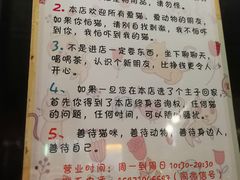 2、本店欢迎所有爱猫、爱动物的朋友,
如果你怕猫,请别自找刺激,我不怕吓
到你,我怕吓到我的猫。
3、不是进店一定要消东西,坐下聊聊天,
喝喝茶,认识个新朋友,比挣钱更令人
开心。
4、如果一旦您在本店选了个主子回家,
首先你得到了本店终身咨询权,任何猫
的问题,任何时间,可以随时骚扰。
5、善待猫咪,善待动物,善待身边人,
善待自己。
营业时间:周一到周日10:30-20:30